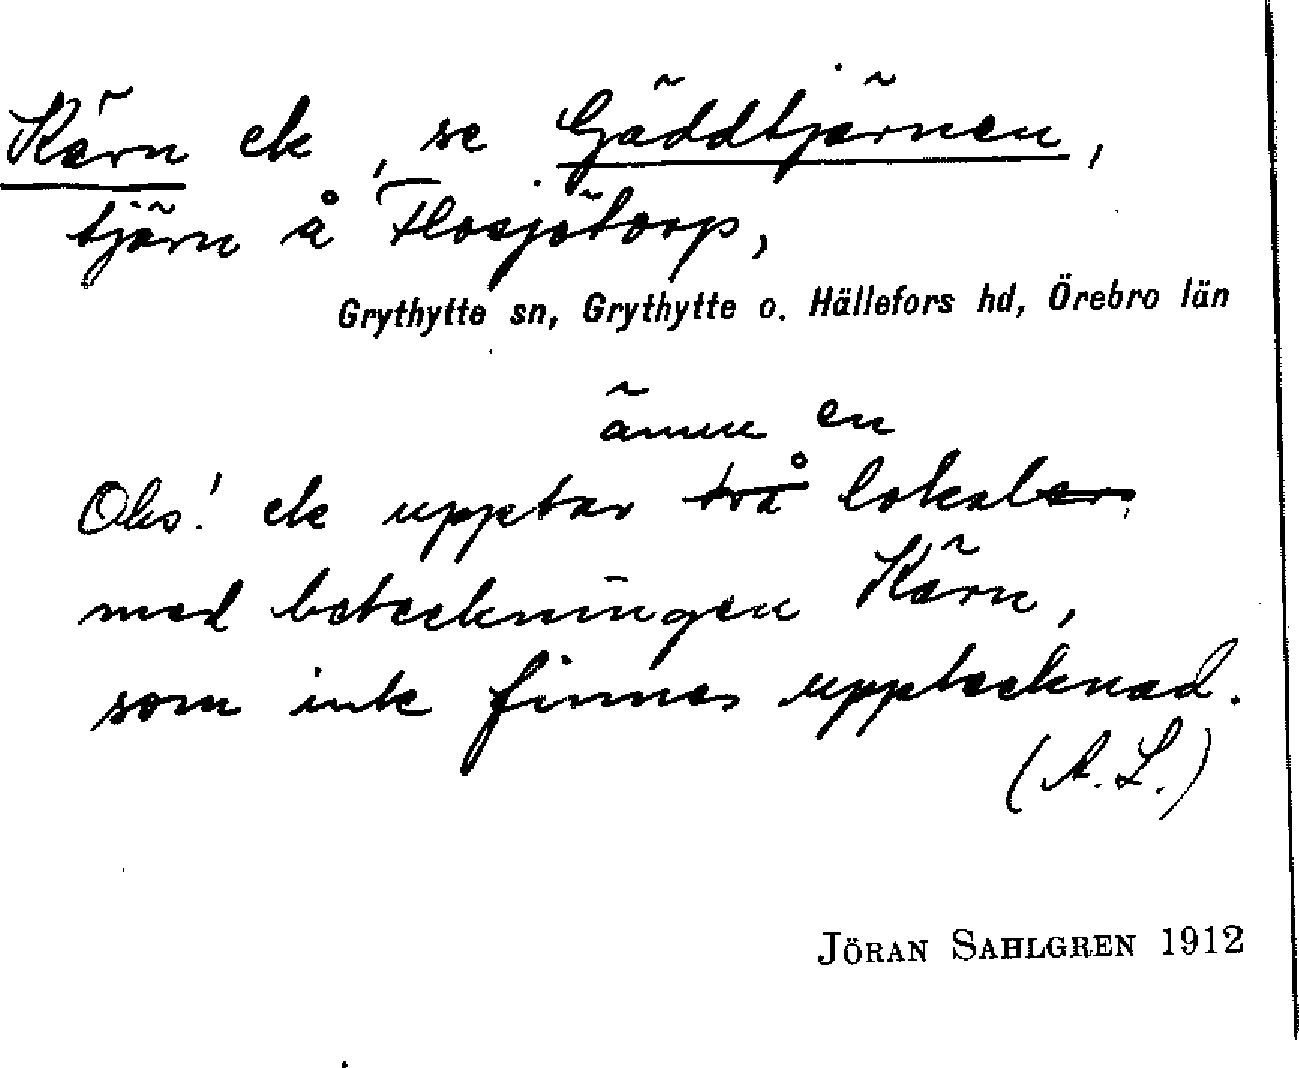 Kärn ek, se Gäddtjärnen,
tjärn å Flosjötorp,
Grythytte sn, Grythytte o. Hällefors hd, Örebro län
ännu en
Obs! ek upptar två lokaler
med beteckningen Kärn,
som inte finnes upptecknad.
(A. L.)
JÖRAN SAHLGREN 1912